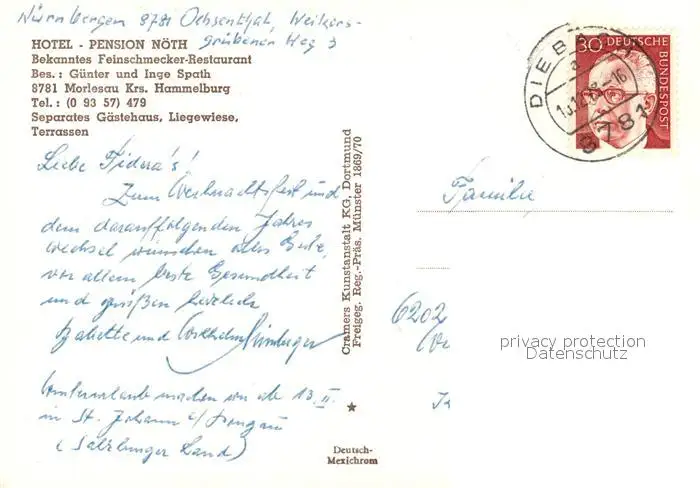 Nürnbergen 8781 Ochsenthal, Weikers-
grübener Weg 3
HOTEL - PENSION NÖTH
Bekanntes Feinschmecker-Restaurant
Bes.: Günter und Inge Spath
8781 Morlesau Krs. Hammelburg
Tel.: (0 93 57) 479
Separates Gästehaus, Liegewiese,
Terrassen
Liebe Fidera's!
Zum Weihnachtsfest und
dem darauffolgenden Jahres
wechsel wünschen alles Gute,
vor allem beste Gesundheit
und grüßen herzlich
Babette und Wilhelm
Winterurlaub machen wir ab 13. II.
in St. Johann i/ Pongau
(Salzburger Land)
Cramers Kunstanstalt KG, Dortmund
Freigeg. Reg.-Präs. Münster 1869/70
Deutsch-
Mexichrom
30 DEUTSCHE
BUNDESPOST
DIEBACH
8781
Familie
6202
privacy protection
Datenschutz